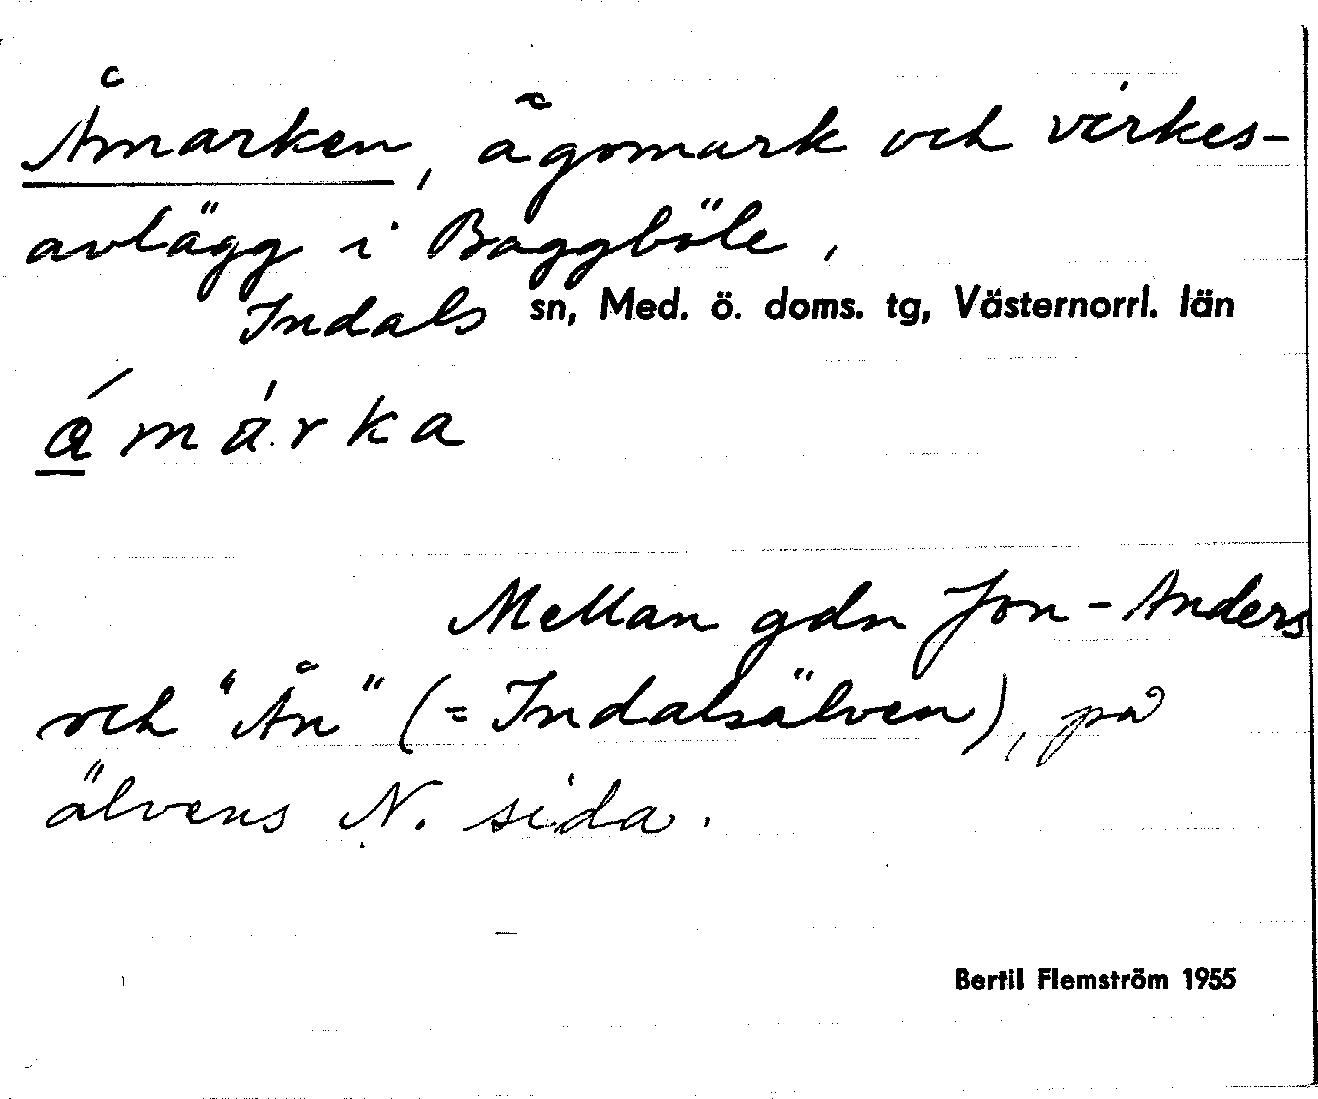 Åmarken, ågomark och virkes-
avlägg i Baggböle,
Indals sn, Med. ö. doms. tg, Västernorrl. län
á̲ má̤rka
Mellan gdn Jon-Anders
och "Ån" (= Indalsälven), på
älvens N. sida.
Bertil Flemström 1955